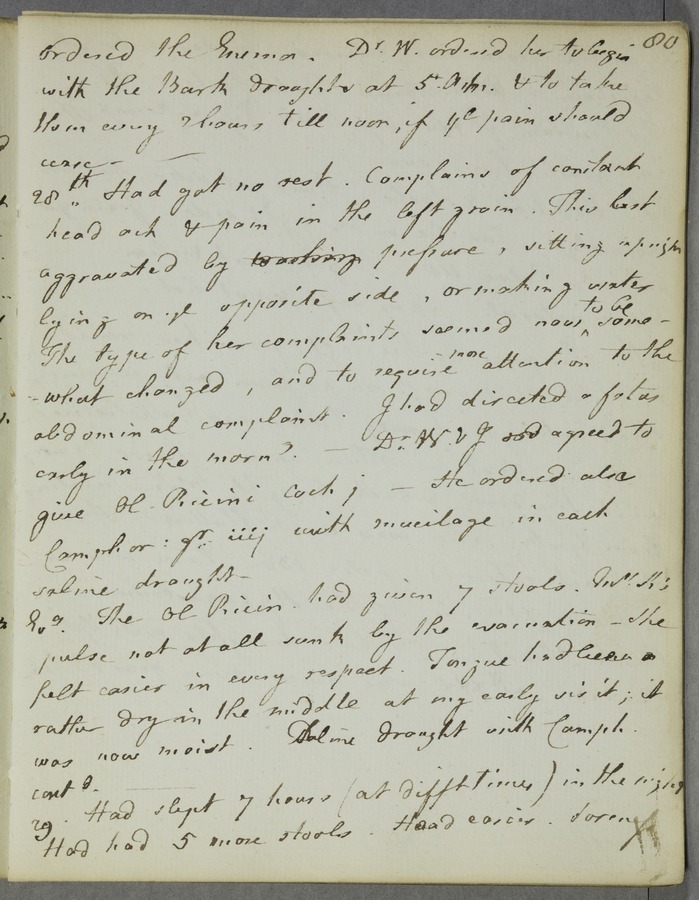 80
ordered the Enema. Dr. W. ordered her to begin
with the Bark draughts at 5 A.m. & to take
them every 2 hours till noon, if ye pain should
cease —
28th Had got no rest. Complains of constant
head ach & pain in the left groin. This last
aggravated by pressure, sitting upright
lying on ye opposite side, or making water
The type of her complaints seemed now to be some-
-what changed, and to require more attention to the
abdominal complaint. I had directed a fotus
early in the morng. — Dr. W. & I agreed to
give Ol Ricini Coch j — He ordered also
Camphor: gr. iiij with mucilage in each
saline draught —
Evg. The Ol Ricin. had given 7 stools.
pulse not at all sunk by the evacuation — she
felt easier in every respect. Tongue had been
rather dry in the middle at my early visit; it
was now moist. Saline draught with Camph.
contd.
29. Had slept 7 hours (at difft times) in the night
Had had 5 more stools. Head easier.